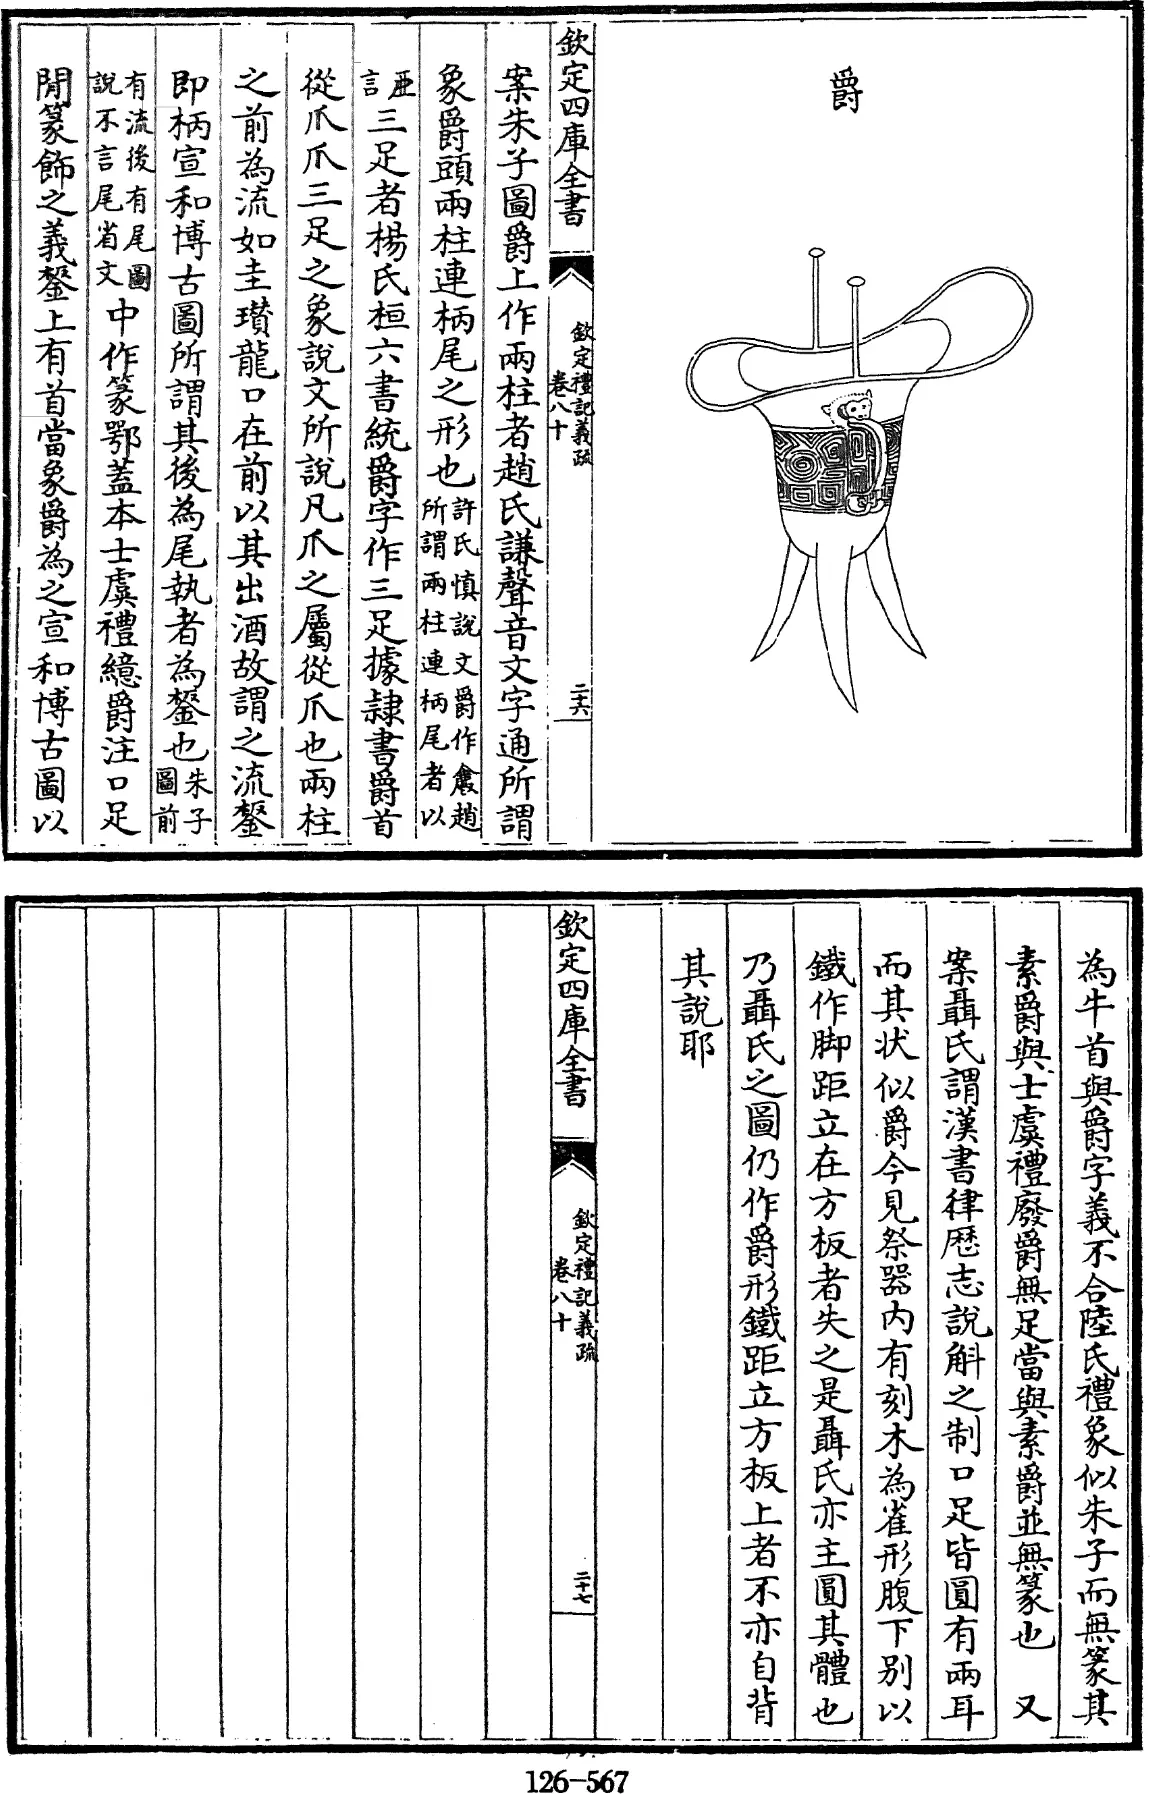 爵
欽定四庫全書
欽定禮記義疏
卷八十
二十六
案朱子圖爵上作兩柱者趙氏謙聲音文字通所謂
象爵頭兩柱連柄尾之形也許氏慎説文爵作𩰥趙所謂兩柱連柄尾者以
亜言三足者楊氏桓六書統爵字作三足據隷書爵首
從爪爪三足之象説文所説凡爪之屬從爪也兩柱
之前為流如圭瓚龍口在前以其出酒故謂之流鋬
即柄宣和博古圖所謂其後為尾執者為鋬也朱子圖前
有流後有尾圖説不言尾省文中作篆鄂蓋本士虞禮繶爵注口足
閒篆飾之義鋬上有首當象爵為之宣和博古圖以
為牛首與爵字義不合陸氏禮象似朱子而無篆其
素爵與士虞禮廢爵無足當與素爵並無篆也 又
案聶氏謂漢書律歴志説斛之制口足皆圓有兩耳
而其状似爵今見祭器内有刻木為雀形腹下别以
鐵作脚距立在方板者失之是聶氏亦主圓其體也
乃聶氏之圖仍作爵形鐵距立方板上者不亦自背
其説耶
欽定四庫全書
欽定禮記義疏
卷八十
二十七
126-567